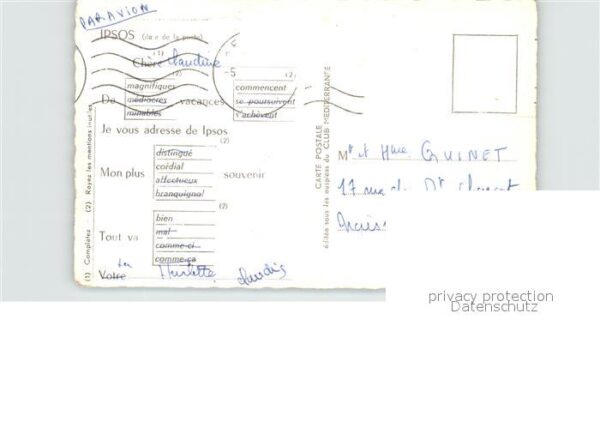 PAR AVION
IPSOS (date de la poste)
(1)
Chère Claudine
(2)
magnifiques
De médiocres vacances
minables
5
(2)
commencent
se poursuivent
s'achèvent
Je vous adresse de Ipsos
(2)
distingué
cordial
Mon plus affectueux souvenir
branquignol
(2)
bien
mal
Tout va comme-ci
comme-ça
Votre
(1) Complétez - (2) Rayez les mentions inutiles
CARTE POSTALE
éditée sous les auspices du CLUB MEDITERRANEE
Mr et Mme GUINET
17 rue du Dr
privacy protection
Datenschutz